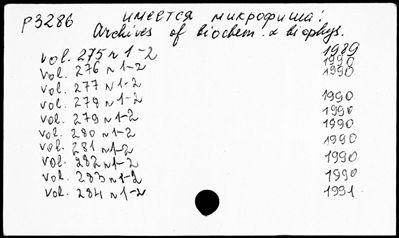 P3286 имеется микрофиша:
Archives of biochem. & biophys.
vol. 275 N 1-2 1989
vol. 276 N 1-2 1990
vol. 277 N 1-2 1990
vol. 278 N 1-2 1990
vol. 279 N 1-2 1990
vol. 280 N 1-2 1990
vol. 281 N 1-2 1990
vol. 282 N 1-2 1990
vol. 283 N 1-2 1990
vol. 284 N 1-2 1991